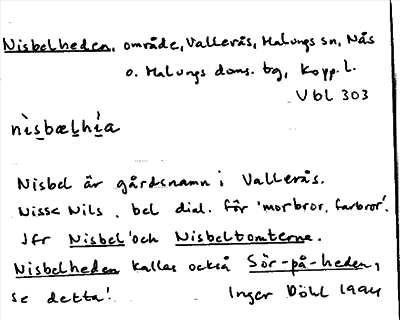 Nisbelheden, område, Vallerås, Malungs sn, Nås
o. Malungs doms. bg, Kopp. l.
V bl 303
nìsbælhı̀a
Nisbel är gårdsnamn i Vallerås.
Nisse Nils, bel dial. för 'morbror, farbror'.
Jfr Nisbel och Nisbeltomterna.
Nisbelheden kallas också Sör-på-heden,
se detta! Inger Döhl 1994